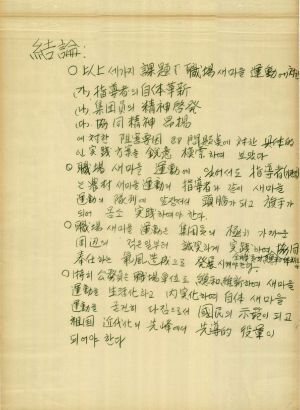 結論:
○ 以上 세가지 課題 職場 새마을 運動에
(가). 指導者의 自体革新
(나). 集団員의 精神啓発
(다). 協同精神 昻揚
에 対한 阻害要因 및 問題点에 対한 具体的
인 実践 方案을 鋭意 模索하여 보았다
○ 職場 새마을 運動에 있어서도 指導者
는 農村 새마을 運動의 指導者와 같이 새마을
運動의 隊列에 앞장서서 頭腦가 되고 旗手가
되어 몸소 実践하여야 한다.
○ 職場 새마을 運動은 集団員의 極히 가까운
周辺의 적은일부터 誠実하게 実践하며 協同
奉仕하는 氣風造成으로 発展시켜야한다.
○ 特히 公務員은 職場単位로 総和維新하며 새마을
運動을 生活化하고 内実化하며 自体 새마을
運動을 굳건히 다짐으로서 國民의 示範이 되고
祖国 近代化의 先峰에서 先導的 役軍이
되어야 한다